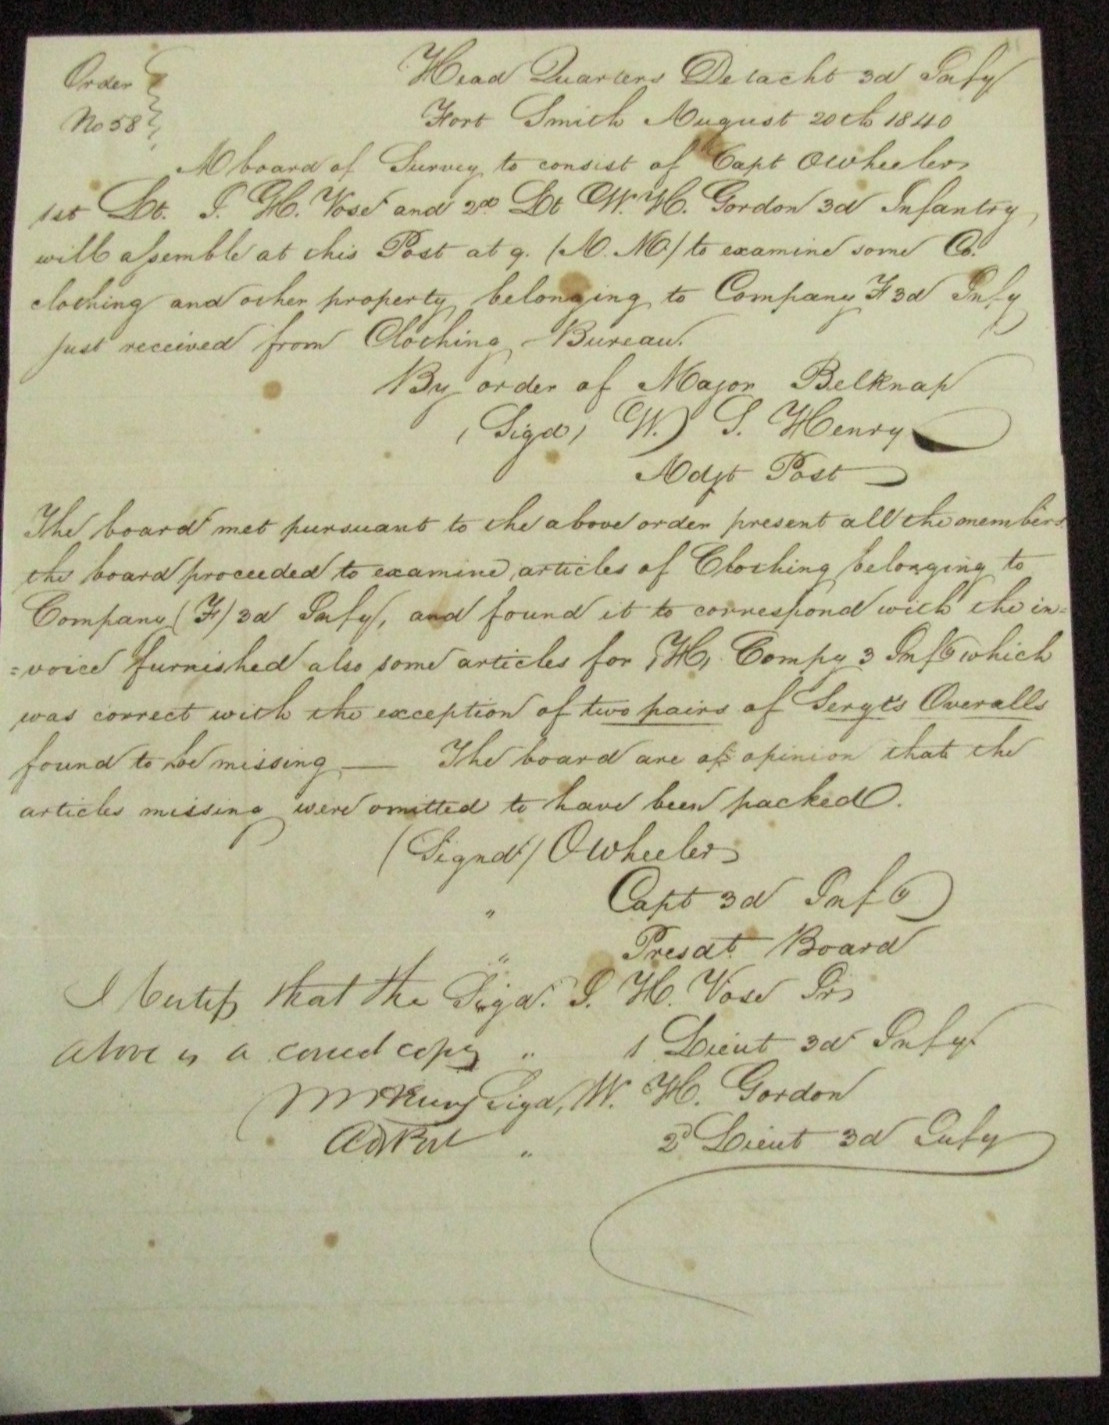 Order
No 58
Head Quarters Detacht 3d Infy
Fort Smith August 20th 1840
A board of Survey to consist of Capt O Wheeler
1st Lt. J. H. Vose and 2d Lt W. H. Gordon 3d Infantry,
will assemble at this Post at 9. (A. M.) to examine some Co.
clothing and other property belonging to Company F 3d Infy
just received from Clothing Bureau.
By order of Major Belknap
(Sigd) W. S. Henry
Adjt Post
The board met pursuant to the above order present all the members
the board proceeded to examine articles of Clothing belonging to
Company (F) 3d Infy, and found it to correspond with the in=
=voice furnished also some articles for (H) Compy 3 Infy which
was correct with the exception of two pairs of Sergts Overalls
found to be missing — The board are of opinion that the
articles missing were omitted to have been packed.
(Signd) O Wheeler
" Capt 3d Infy
" Presdt Board
I Certify that the
above is a correct copy
Sigd. J. H. Vose Jr
" 1 Lieut 3d Infy
Sigd, W. H. Gordon
" 2d Lieut 3d Infy